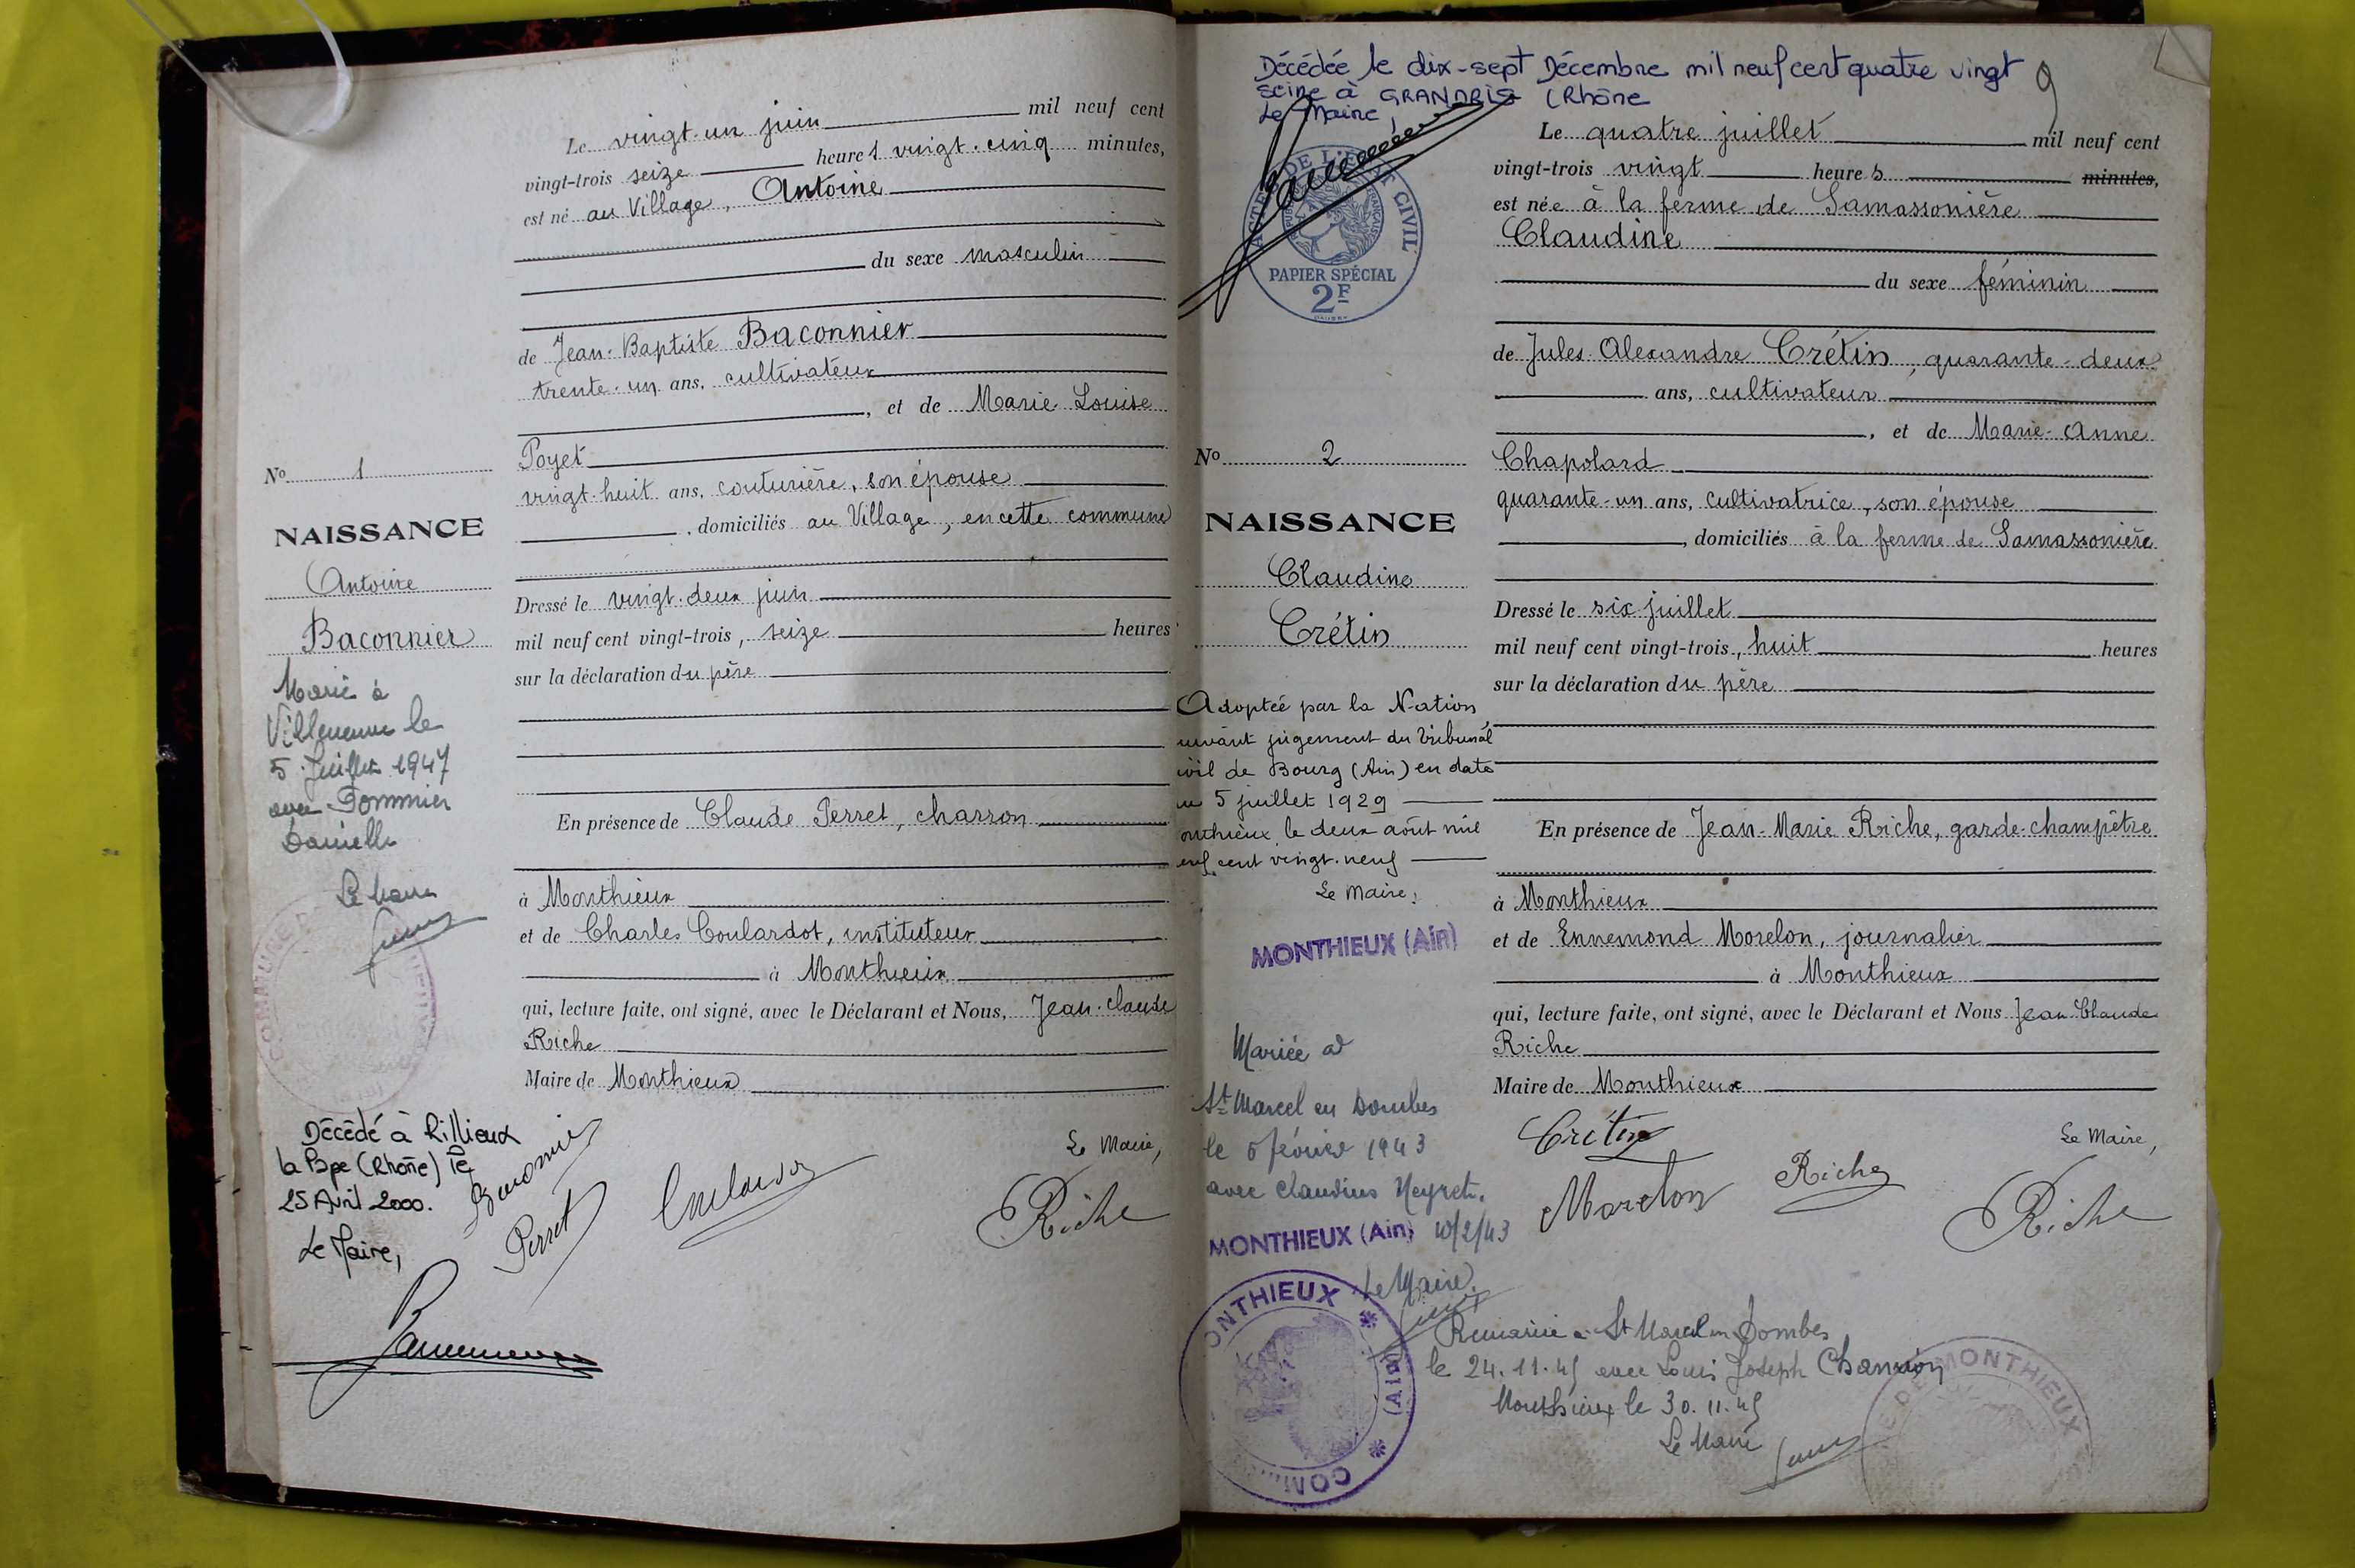 Le vingt-un juin mil neuf cent
vingt-trois seize heures vingt-cinq minutes,
est né au Village, Antoine
du sexe masculin
de Jean-Baptiste Baconnier
trente-un ans, cultivateur
, et de Marie Louise
Poyet
vingt-huit ans, couturière, son épouse
, domiciliés au Village, en cette commune
Dressé le vingt-deux juin
mil neuf cent vingt-trois, seize heures
sur la déclaration du père
En présence de Claude Perret, charron
à Monthieux
et de Charles Coulardot, instituteur
à Monthieux
qui, lecture faite, ont signé, avec le Déclarant et Nous, Jean-Claude
Riche
Maire de Monthieux
Le Maire,
Baconnier
Perret
Coulardot
Riche
No 1
NAISSANCE
Antoine
Baconnier
Marié à
Villeneuve le
5 Juillet 1947
avec Pommier
Danielle
Le Maire
COMMUNE
Décédé à Rillieux
la Pape (Rhône) le
25 Avril 2000.
Le Maire,
Décédée le dix-sept Décembre mil neuf cent quatre vingt
seize à GRANDRIS (Rhône
Le Maire,
9
ACTES DE L'ÉTAT CIVIL
PAPIER SPÉCIAL
2F
Le quatre juillet mil neuf cent
vingt-trois vingt heures minutes,
est née à la ferme de Samassonière
Claudine
du sexe féminin
de Jules Alexandre Crétin, quarante-deux
ans, cultivateur
, et de Marie-Anne
Chapolard
quarante-un ans, cultivatrice, son épouse
, domiciliés à la ferme de Samassonière
Dressé le six juillet
mil neuf cent vingt-trois, huit heures
sur la déclaration du père
En présence de Jean-Marie Riche, garde-champêtre
à Monthieux
et de Ennemond Morelon, journalier
à Monthieux
qui, lecture faite, ont signé, avec le Déclarant et Nous Jean Claude
Riche
Maire de Monthieux
Le Maire,
Crétin
Morelon
Riche
Riche
No 2
NAISSANCE
Claudine
Crétin
Adoptée par la Nation
uivant jugement du Tribunal
ivil de Bourg (Ain) en date
u 5 juillet 1929
onthieux le deux août mil
euf cent vingt-neuf
Le Maire,
MONTHIEUX (Ain)
Mariée à
St Marcel en Dombes
le 6 février 1943
avec Claudius Neyret.
MONTHIEUX (Ain) 10/2/43
Le Maire,
ONTHIEUX * (Ain) * COMM
Remariée à St Marcel en Dombes
le 24.11.45 avec Louis Joseph Chanrion
Monthieux le 30.11.45
Le Maire
E DE MONTHIEUX